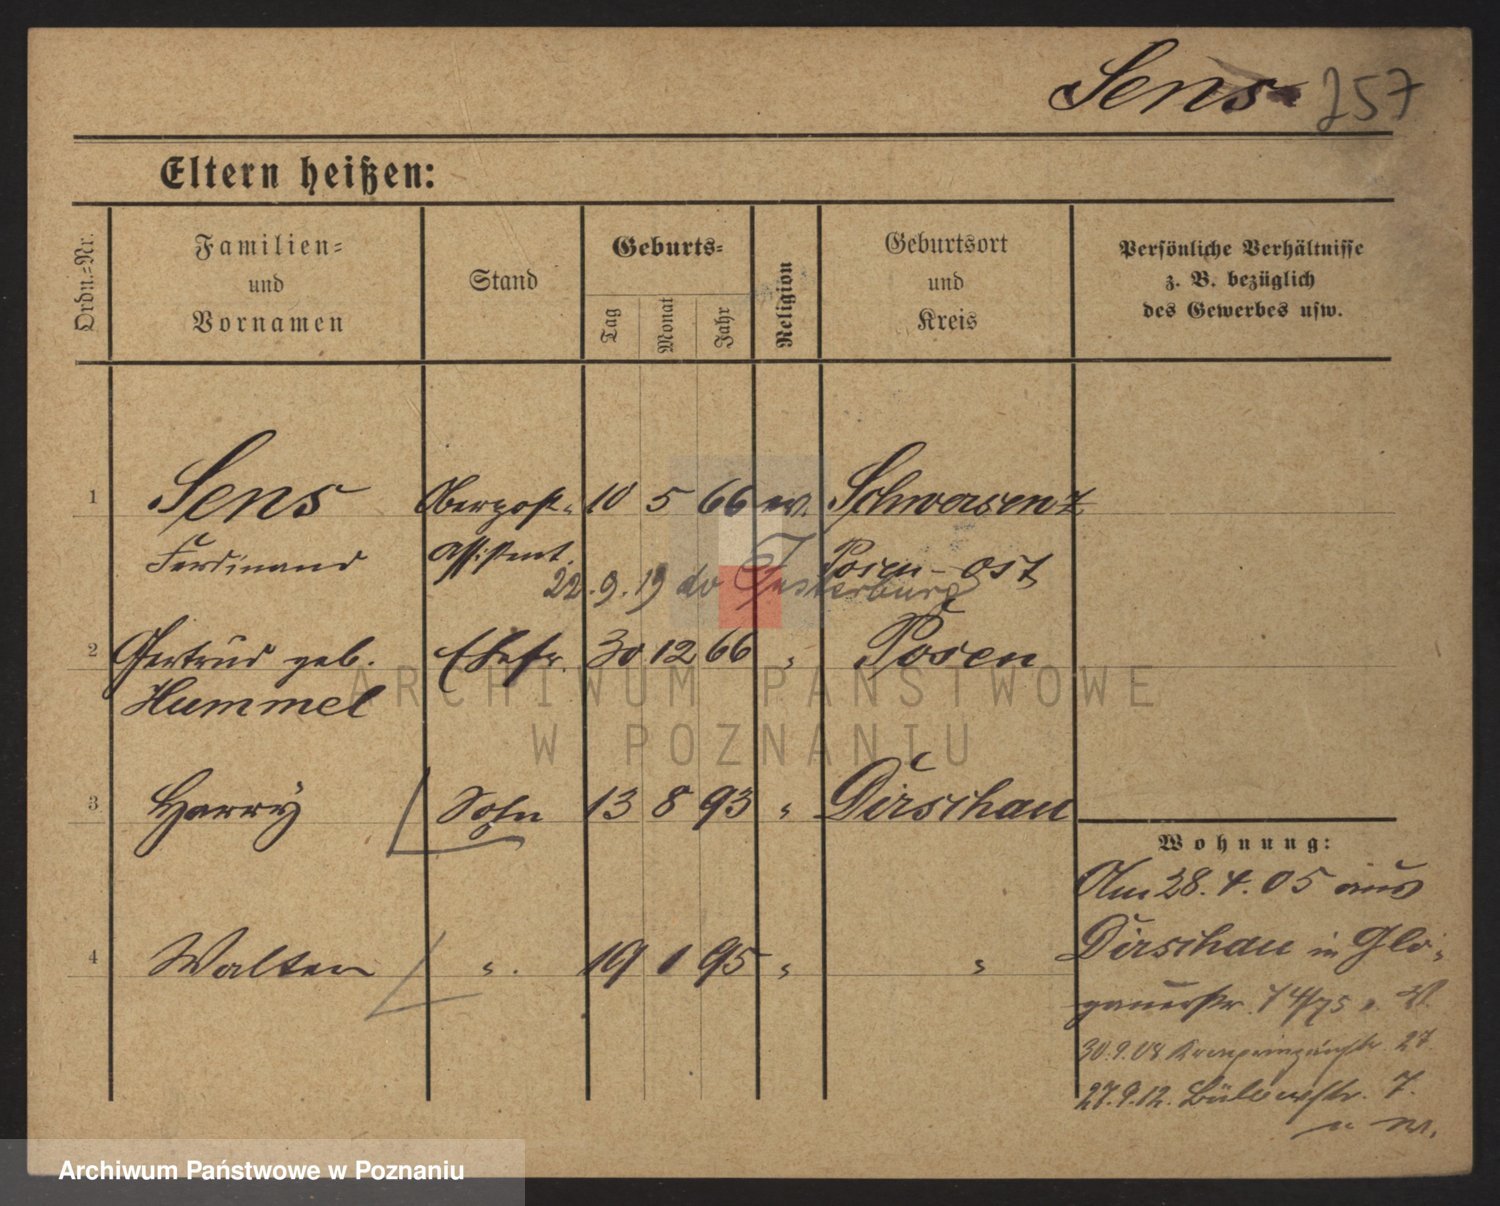 Sens 257
Eltern heißen:
Ordn.=Nr.
Familien=
und
Vornamen
Stand
Geburts=
Tag
Monat
Jahr
Religion
Geburtsort
und
Kreis
Persönliche Verhältnisse
z. B. bezüglich
des Gewerbes usw.
1 Sens Oberpost- 10 5 66 ev. Schwersenz
Ferdinand assistent. Posen-ost
22.9.19 do Insterburg
2 Gertrud geb. Ehefr. 30 12 66 " Posen
Hummel
3 Harry Sohn 13 8 93 " Dirschau
4 Walter " . 19 1 95 " "
Wohnung:
Am 28.4.05 aus
Dirschau in Glo-
gauerstr. 74/75
30.9.08 Kronprinzenstr. 27
27.9.12. Bülowstr. 7.
ARCHIWUM PAŃSTWOWE
W POZNANIU
Archiwum Państwowe w Poznaniu